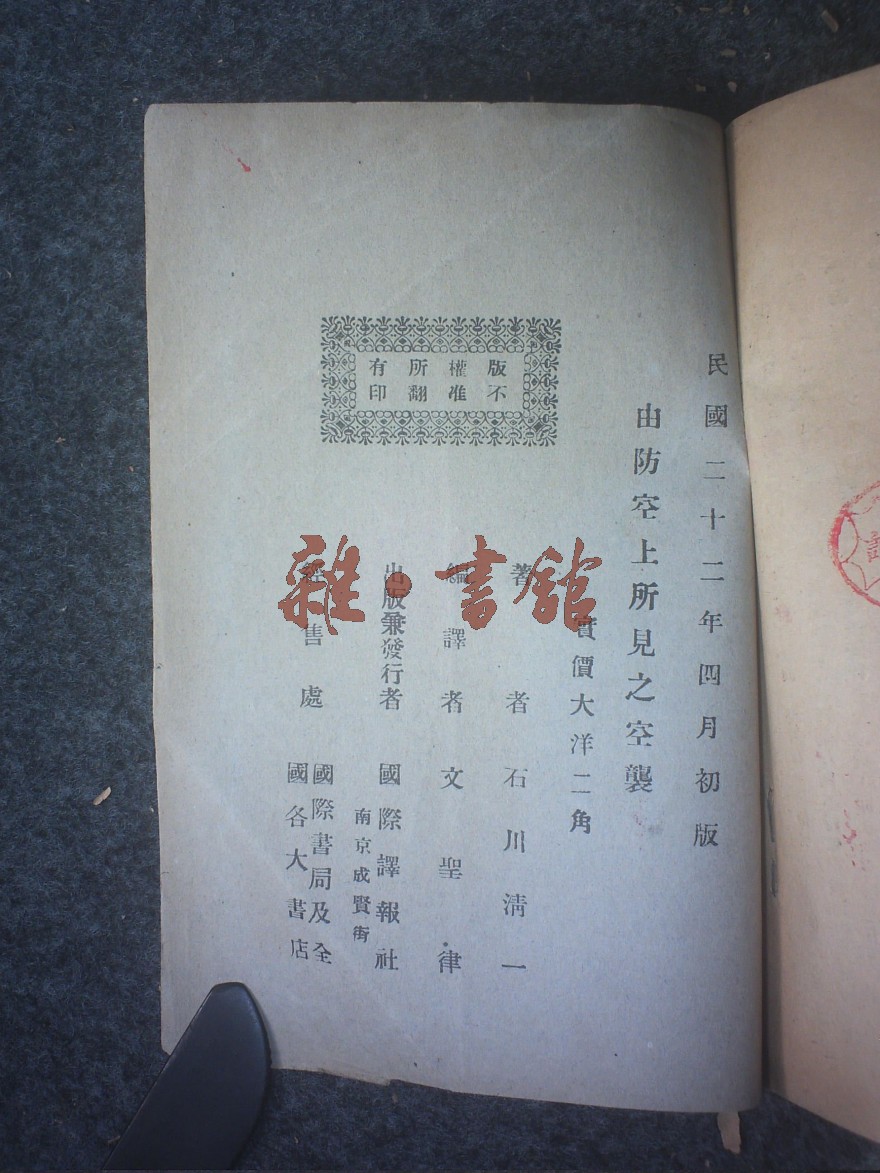 民國二十二年四月初版
由防空上所見之空襲
實價大洋二角
著者石川淸一
編譯者文聖律
出版兼發行者國際譯報社
南京成賢街
經售處國際書局及全
國各大書店
版權所有
不准翻印
雜·書館